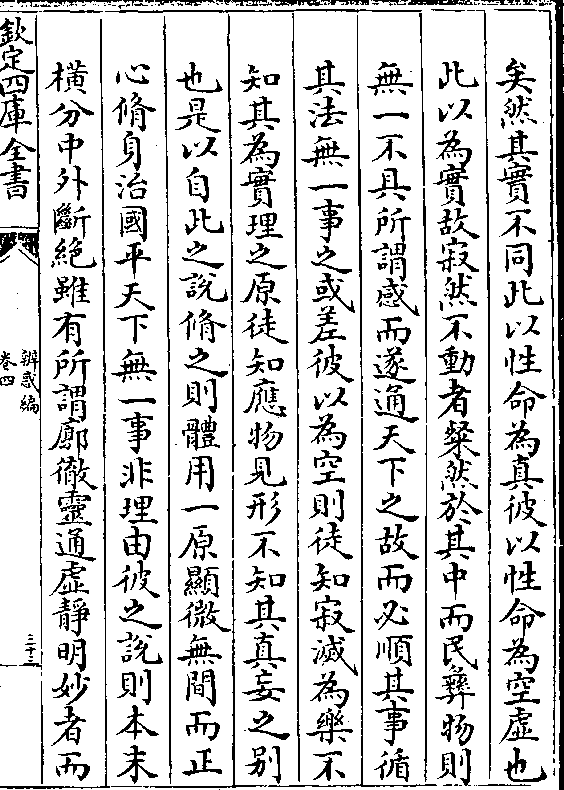 矣然其實不同此以性命為真彼以性命為空虛也
此以為實故寂然不動者粲然於其中而民彝物則
無一不具所謂感而遂通天下之故而必順其事循
其法無一事之或差彼以為空則徒知寂滅為樂不
知其為實理之原徒知應物見形不知其真妄之別
也是以自此之說脩之則體用一原顯微無間而正
心脩身治國平天下無一事非理由彼之說則本末
橫分中外斷絶雖有所謂廓徹靈通虛靜明妙者而
欽定四庫全書
辨惑編
卷四
三十三